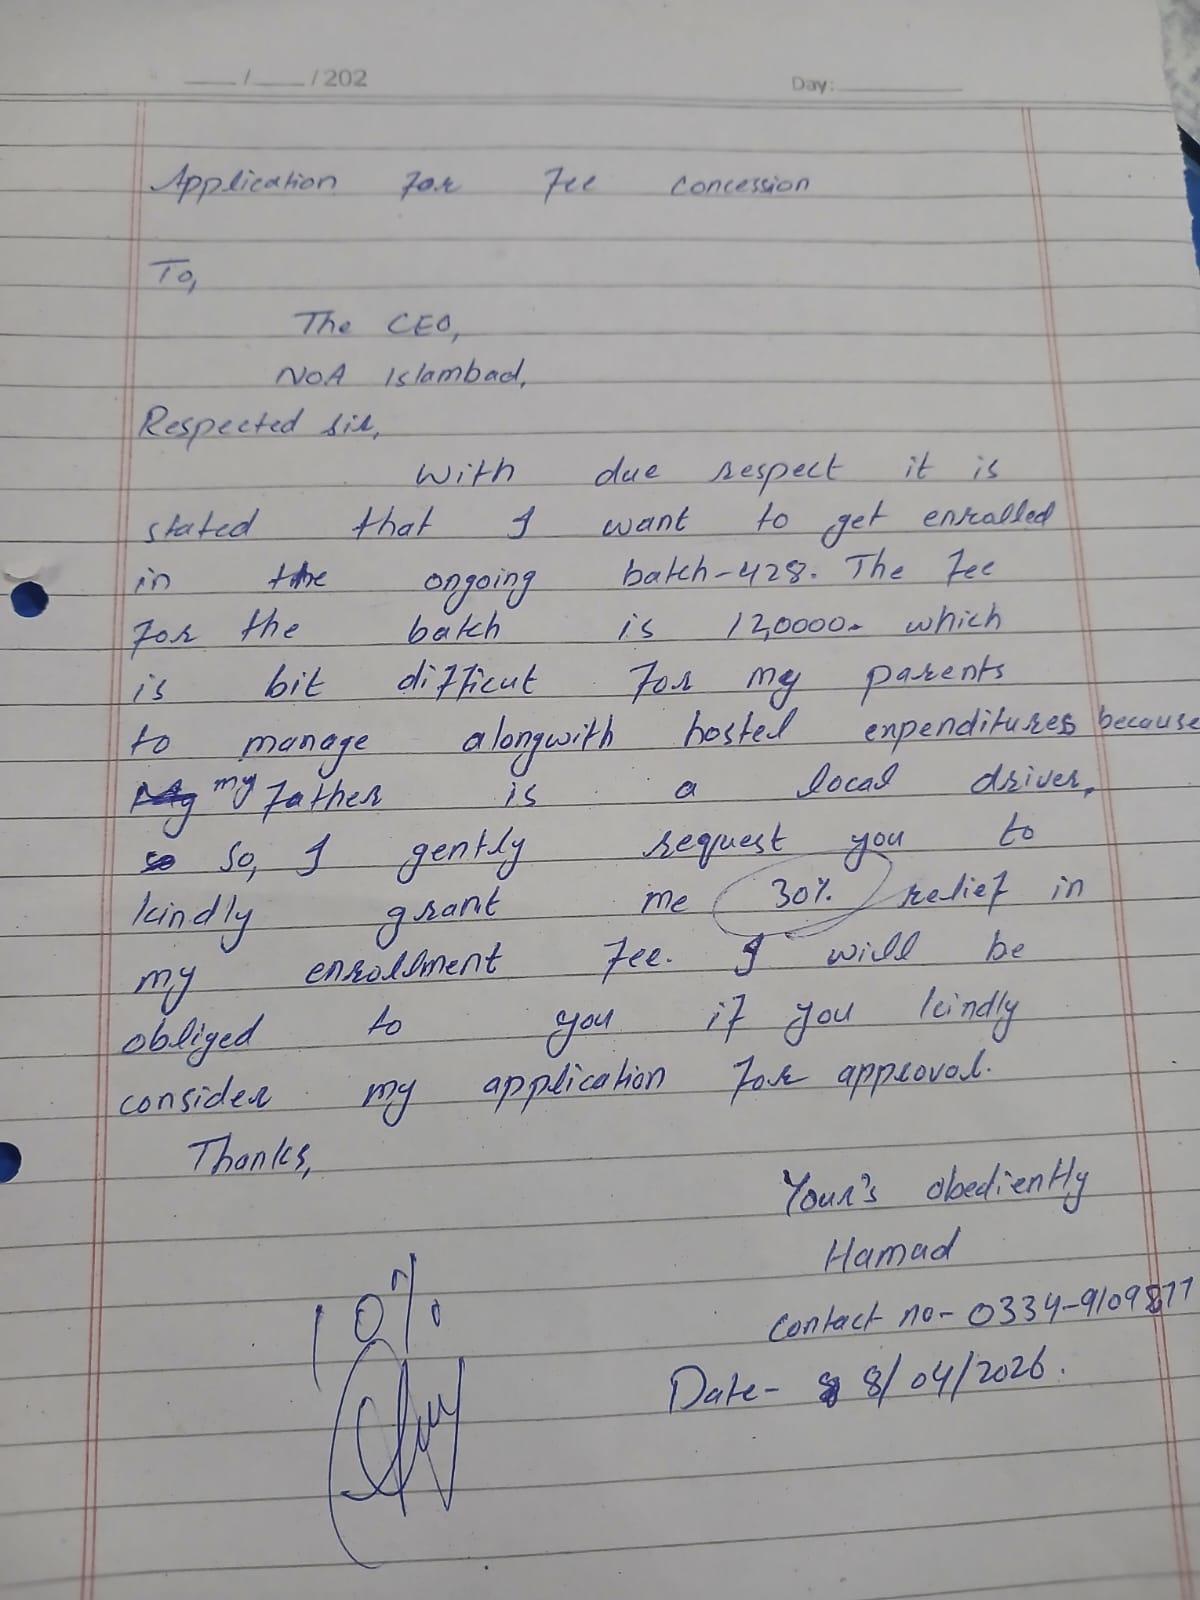 __/__/202
Day:
Application For Fee concession
To,
The CEO,
NOA Islambad,
Respected sir,
With due respect it is
stated that I want to get enrolled
in the ongoing batch-428. The Fee
For the batch is 12,0000. which
is bit difficut For my parents
to manage alongwith hostel expenditures because
my Father is a local driver,
So, I gently request you to
kindly grant me 30% relief in
my enrollment Fee. I will be
obliged to you if you kindly
consider my application For approval.
Thanks,
Your's obediently
Hamad
Contact no- 0334-9109877
Date- 8/04/2026.
10%